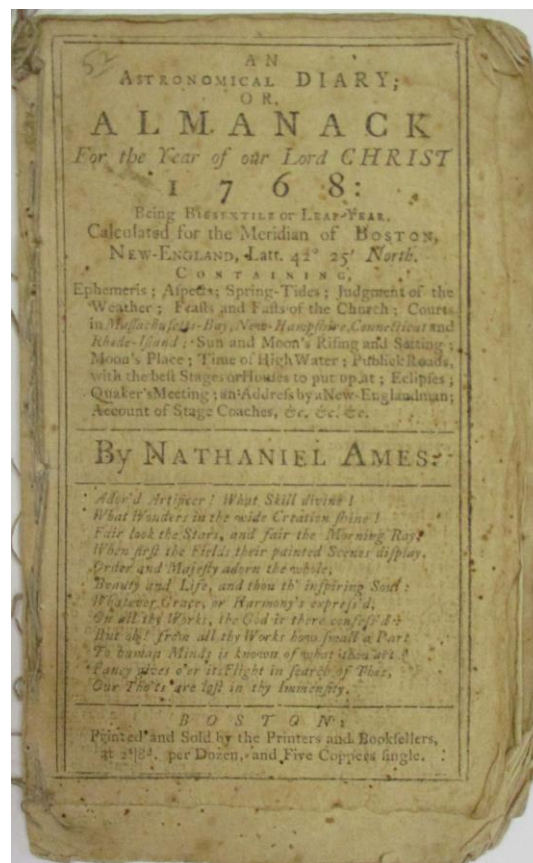 52
AN
ASTRONOMICAL DIARY;
OR,
ALMANACK
For the Year of our Lord CHRIST
1768:
Being BISSEXTILE or LEAP-YEAR.
Calculated for the Meridian of BOSTON,
NEW-ENGLAND, Latt. 42° 25' North.
CONTAINING,
Ephemeris; Aſpects; Spring-Tides; Judgment of the
Weather; Feaſts and Faſts of the Church; Courts
in Maſſachuſetts-Bay, New-Hampſhire, Connecticut and
Rhode-Iſland; Sun and Moon's Riſing and Setting;
Moon's Place; Time of High Water; Publick Roads,
with the beſt Stages or Houſes to put up at; Eclipſes;
Quaker's Meeting; an Addreſs by a New-Englandman;
Account of Stage Coaches, &c. &c. &c.
By NATHANIEL AMES.
Ador'd Artificer! What Skill divine!
What Wonders in the wide Creation ſhine!
Fair look the Stars, and fair the Morning Ray,
When firſt the Fields their painted Scenes diſplay.
Order and Majeſty adorn the whole,
Beauty and Life, and thou th' inſpiring Soul:
Whatever Grace, or Harmony's expreſs'd,
On all thy Works, the God is there confeſs'd.
But oh! from all thy Works how ſmall a Part
To human Minds is known of what thou art!
Fancy gives o'er its Flight in ſearch of Thee,
Our Tho'ts are loſt in thy Immenſity.
BOSTON:
Printed and Sold by the Printers and Bookſellers,
at 2s8d. per Dozen, and Five Coppers ſingle.